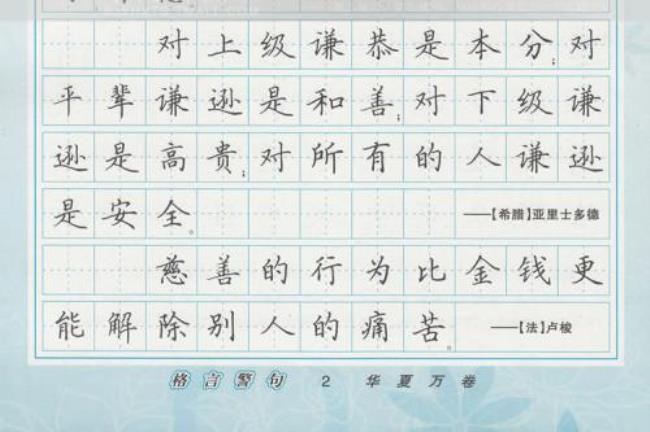 对上级谦恭是本分;对
平辈谦逊是和善;对下级谦
逊是高贵;对所有的人谦逊
是安全。 ——【希腊】亚里士多德
慈善的行为比金钱更
能解除别人的痛苦。 ——【法】卢梭
格言警句 2 华夏万卷